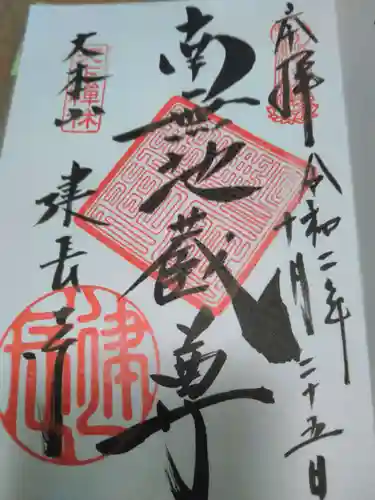 奉拝
令和二年
十月二十五日
南無地蔵尊
大本山
建長寺